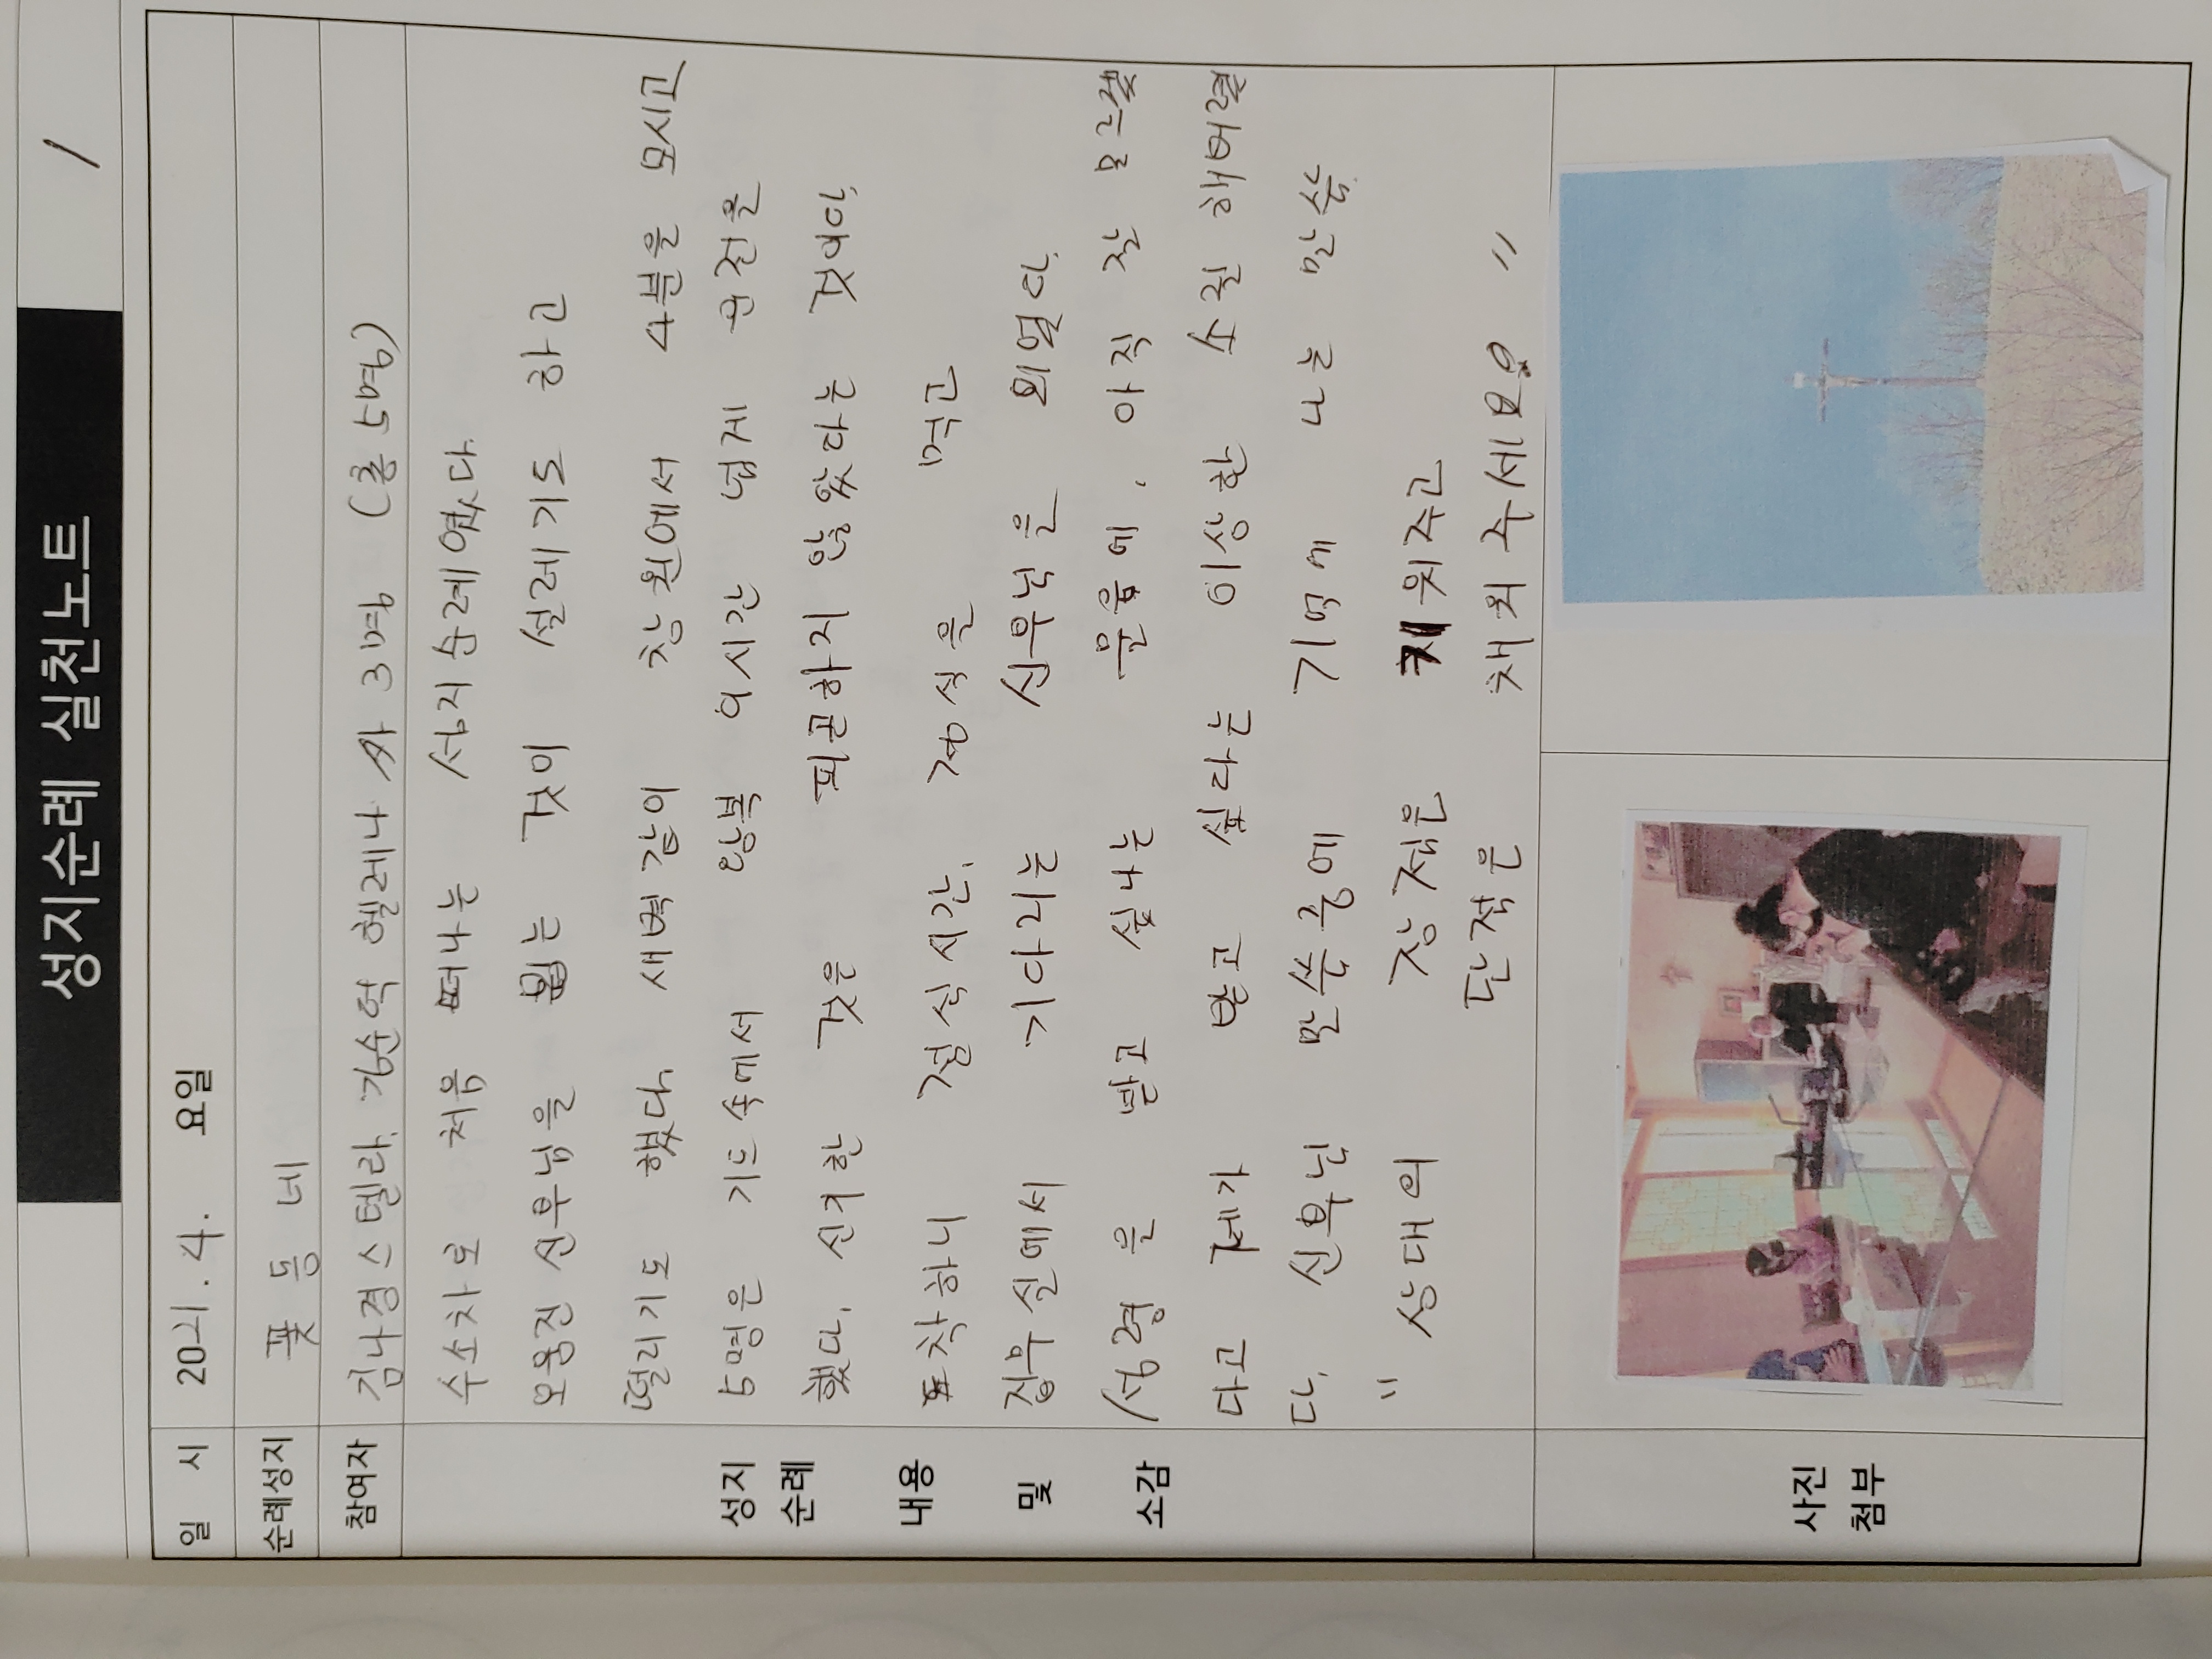 성지순례 실천노트 1
일 시 2021. 4. 요일
순례성지 꽃동네
참여자 김나경스텔라, 김순덕 헬레나 외 3명 (총 5명)
수소차로 처음 떠나는 성지순례였다.
오웅진 신부님을 뵙는 것이 설레기도 하고
떨리기도 했다. 새벽같이 창원에서 4분을 모시고
5명은 기도속에서 왕복 9시간 넘게 운전을
했다. 신기한 것은 피곤하지 않았다는 것이다.
도착하니 점심시간, 점심을 먹고
집무실에서 기다리는 신부님을 뵈었다.
성령을 받고 싶냐는 물음에, 아직 잘 모르겠
다고 제가 받고 싶다는 이상한 소릴 해버렸
다. 신부님 말씀중에 기억에 나는 말씀
" 상대의 장점은 키워주고
단점은 채워주세요! "
성지
순례
내용
및
소감
사진
첨부